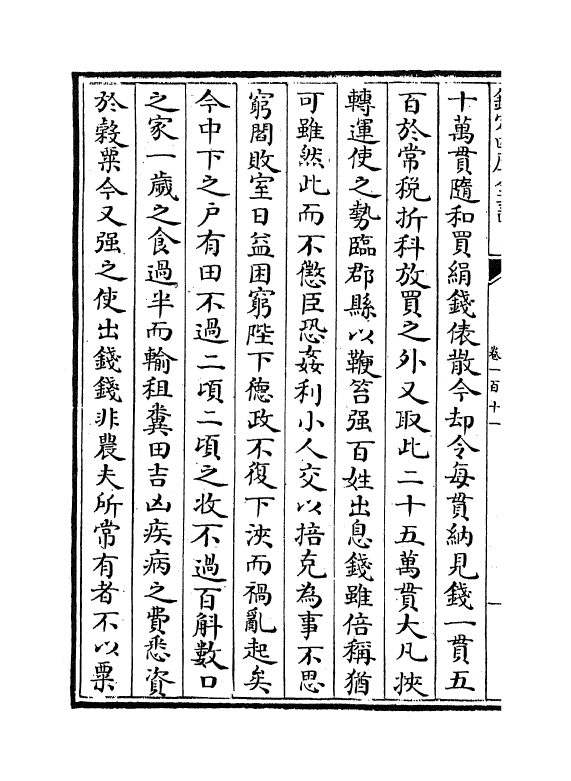 欽定四庫全書
卷一百十一
十萬貫隨和買絹錢俵散今却令每貫納見錢一貫五
百於常税折科放買之外又取此二十五萬貫大凡挾
轉運使之勢臨郡縣以鞭笞强百姓出息錢雖倍稱猶
可雖然此而不懲臣恐姦利小人交以掊克為事不思
窮閻敗室日益困窮陛下徳政不復下浹而禍亂起矣
今中下之户有田不過二頃二頃之收不過百斛數口
之家一歲之食過半而輸租糞田吉凶疾病之費悉資
於穀粟今又强之使出錢錢非農夫所常有者不以粟